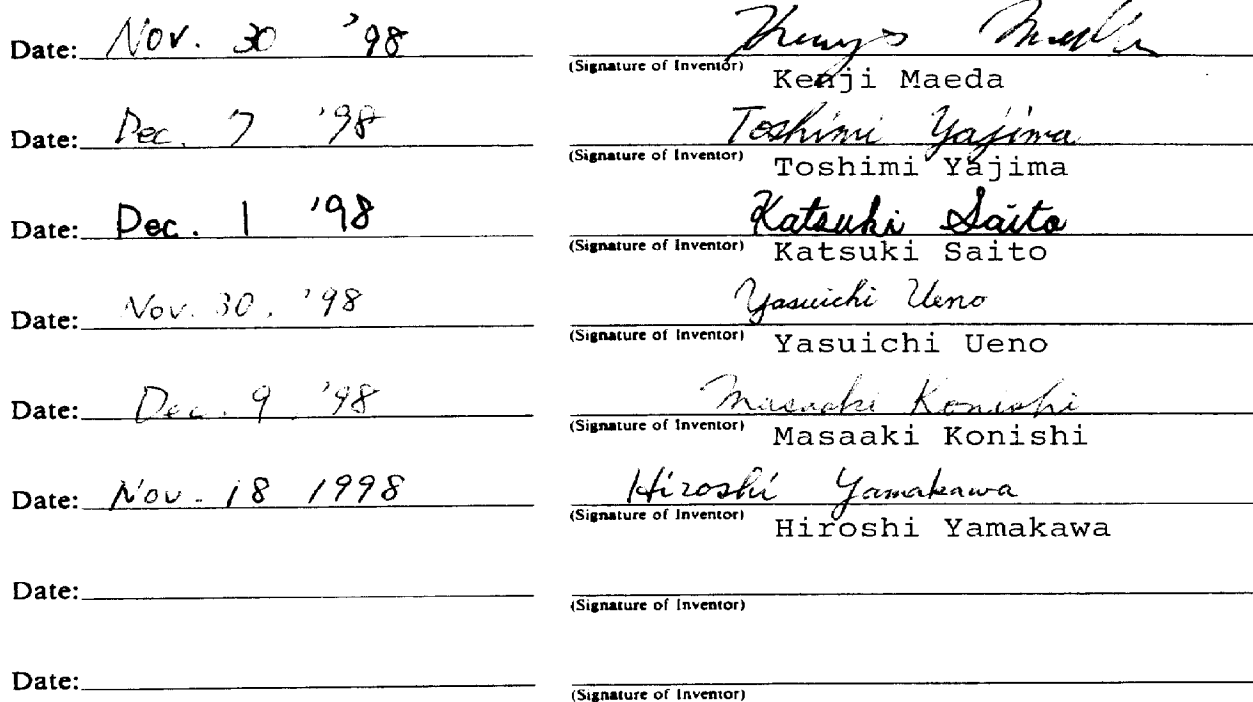 Date: Nov. 30 '98
(Signature of Inventor) Kenji Maeda
Date: Dec. 7 '98 Toshimi Yajima
(Signature of Inventor) Toshimi Yajima
Date: Dec. 1 '98 Katsuki Saito
(Signature of Inventor) Katsuki Saito
Date: Nov. 30. '98 Yasuichi Ueno
(Signature of Inventor) Yasuichi Ueno
Date: Dec. 9 '98 Masaaki Konishi
(Signature of Inventor) Masaaki Konishi
Date: Nov. 18 1998 Hiroshi Yamakawa
(Signature of Inventor) Hiroshi Yamakawa
Date:
(Signature of Inventor)
Date:
(Signature of Inventor)